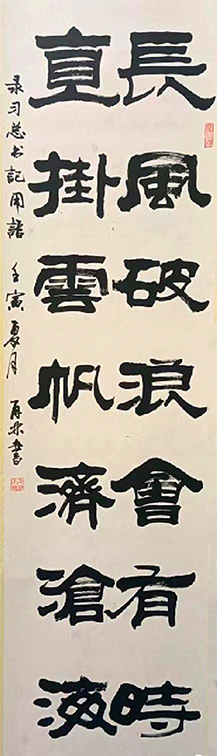 長風破浪會有時
直掛雲帆濟滄海
录习总书記用語 壬寅夏月 再林書